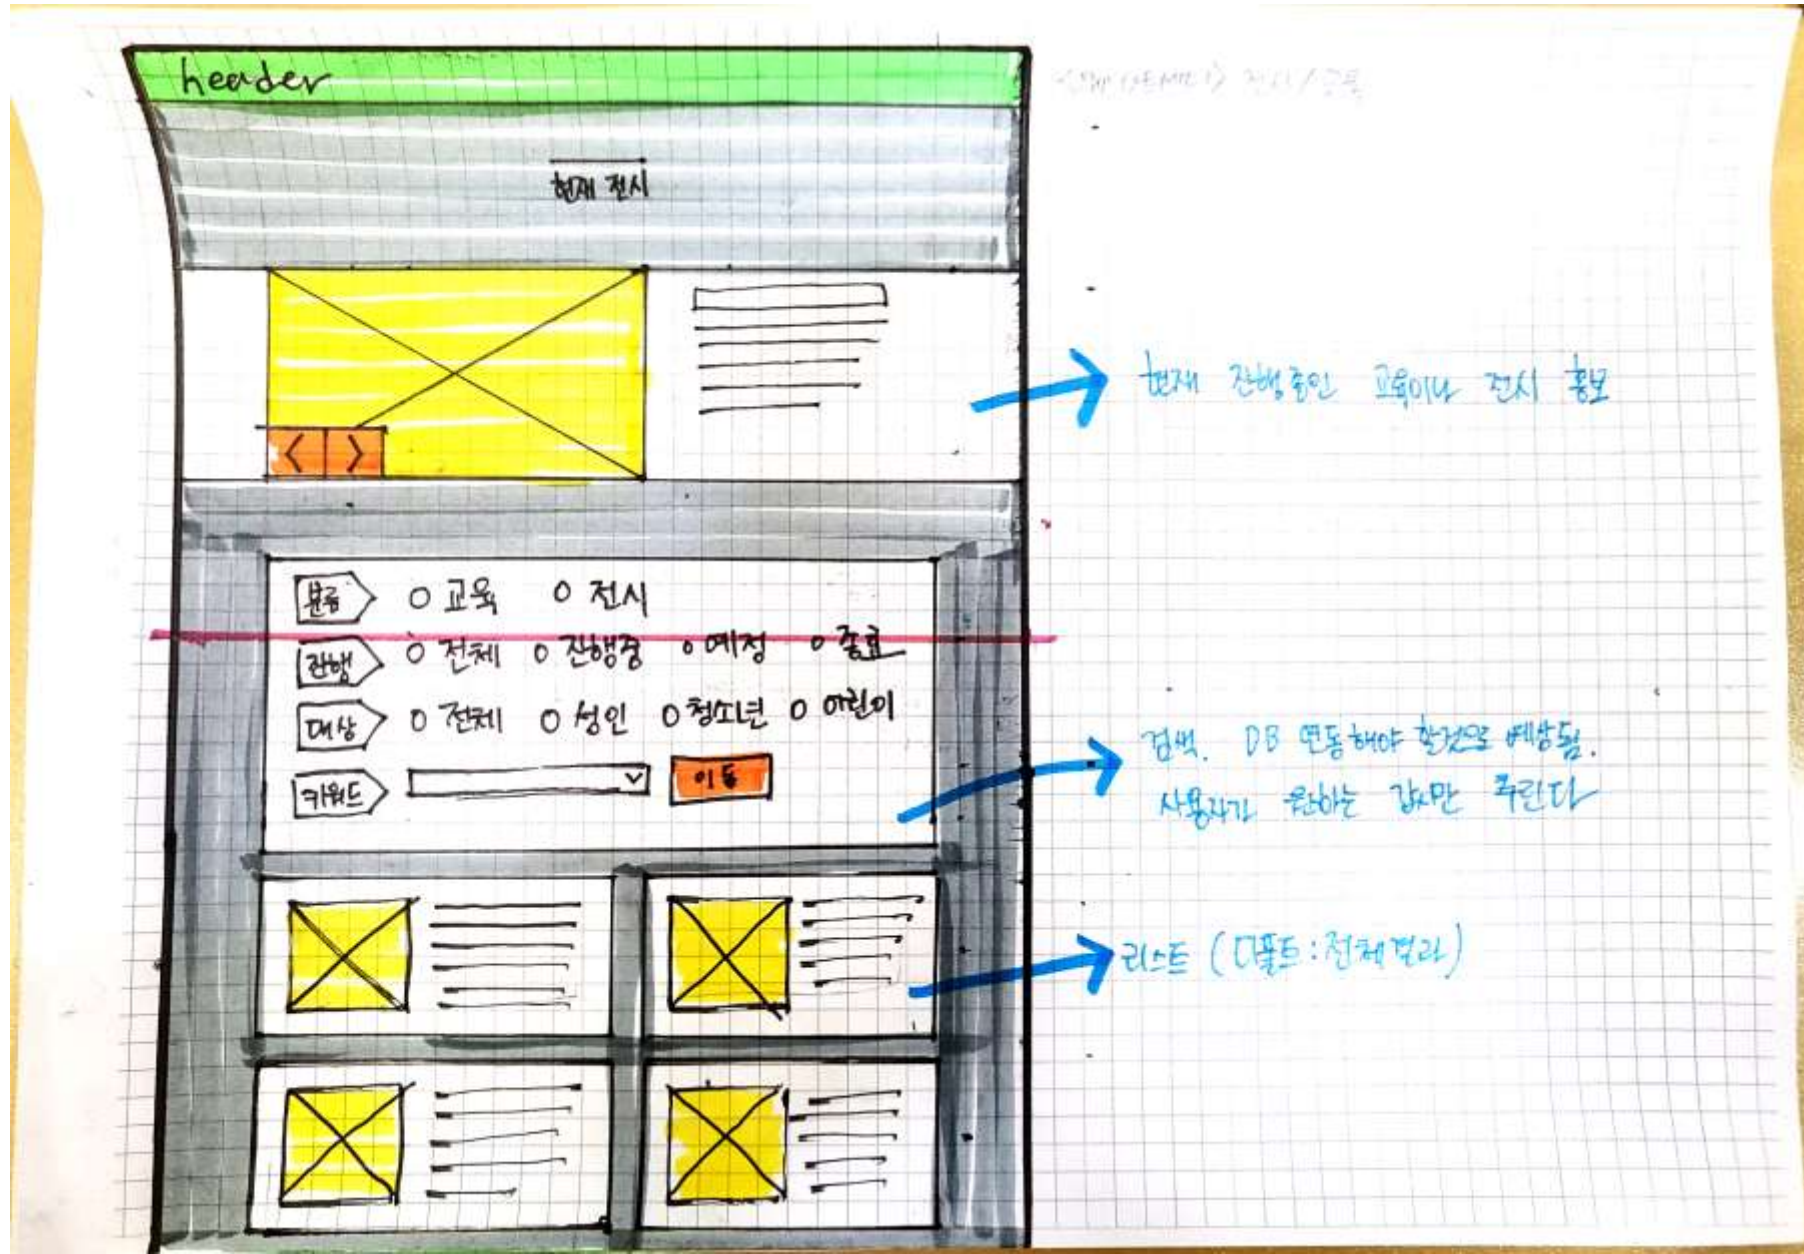 header
현재 전시
현재 진행중인 교육이나 전시 홍보
분류 교육 전시
진행 전체 진행중 예정 종료
대상 전체 성인 청소년 어린이
키워드 이동
검색. DB 연동해야 할것으로 예상됨.
사용자가 원하는 값만 추린다
리스트 (디폴트:전체결과)